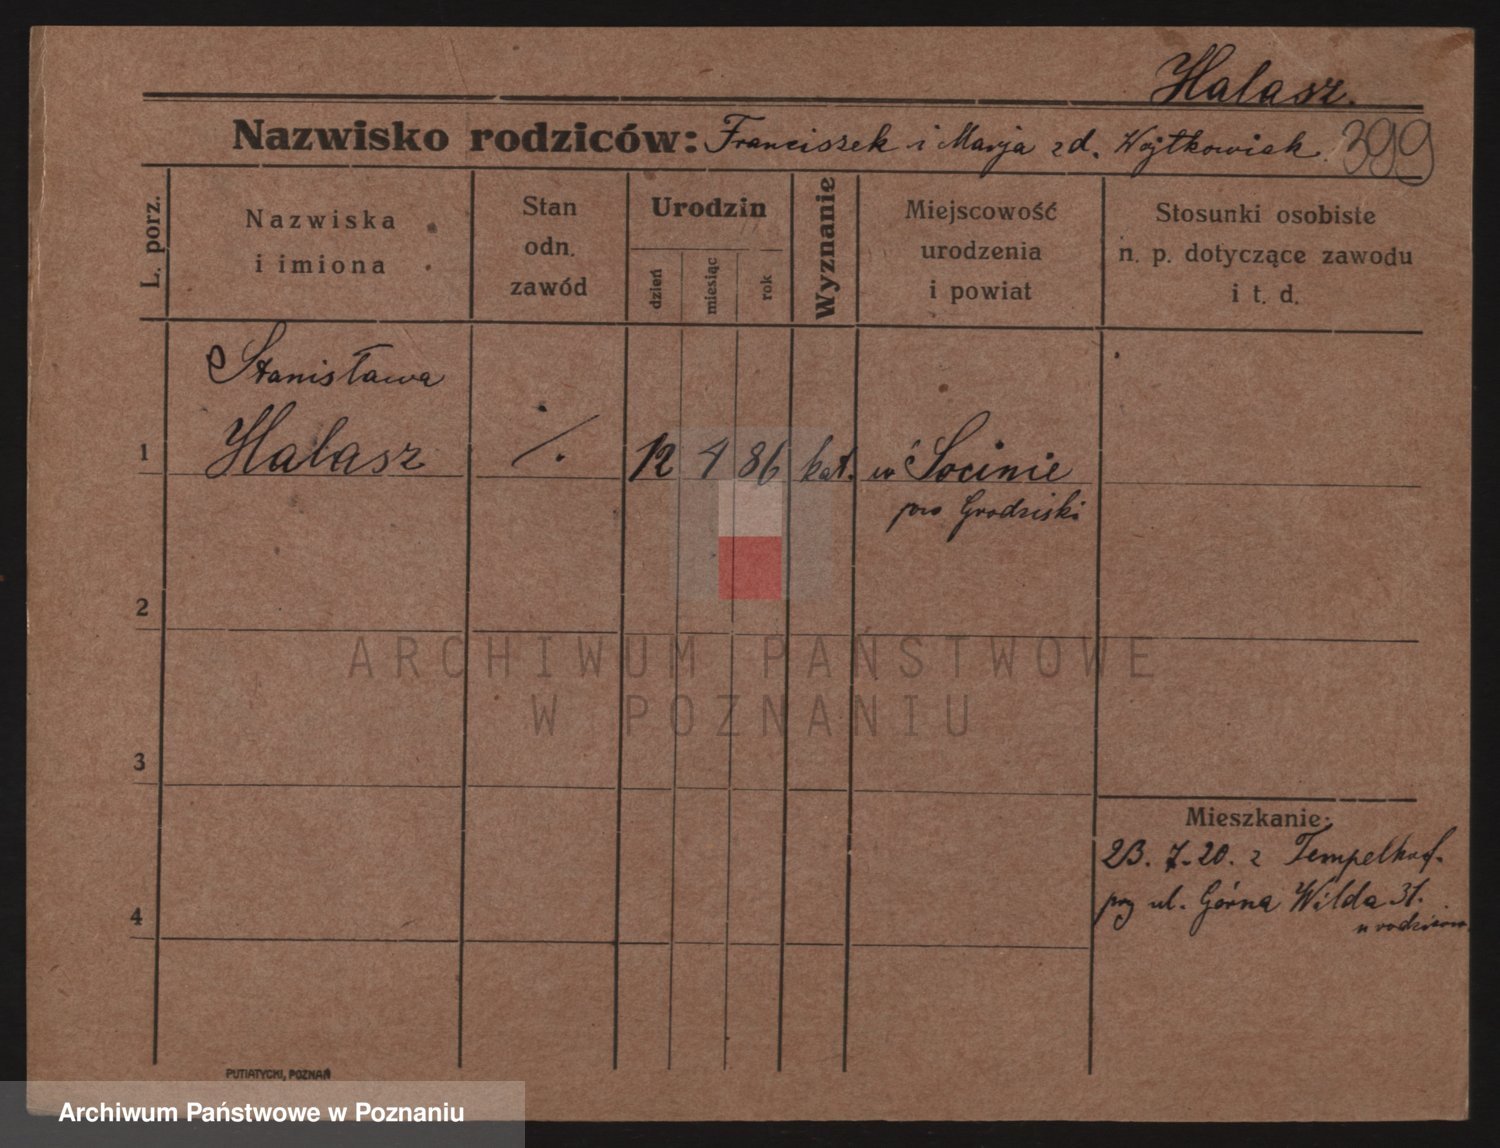 Halasz.
Nazwisko rodziców: Franciszek i Marja zd. Wojtkowiak. 399
L. porz.
Nazwiska
i imiona
Stan
odn.
zawód
Urodzin
dzień
miesiąc
rok
Wyznanie
Miejscowość
urodzenia
i powiat
Stosunki osobiste
n. p. dotyczące zawodu
i t. d.
Stanisława
1 Halasz ./. 12 4 86 kat. w Socinie
pow Grodziski
2
3
4
Mieszkanie:
23. 7.20. z Tempelhof.
przy ul. Górna Wilda 31.
u rodziców.
PUTIATYCKI, POZNAŃ
ARCHIWUM PAŃSTWOWE
W POZNANIU
Archiwum Państwowe w Poznaniu